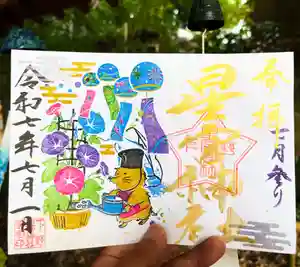 奉拝
七月参り
星宮神社
令和七年七月一日
下野